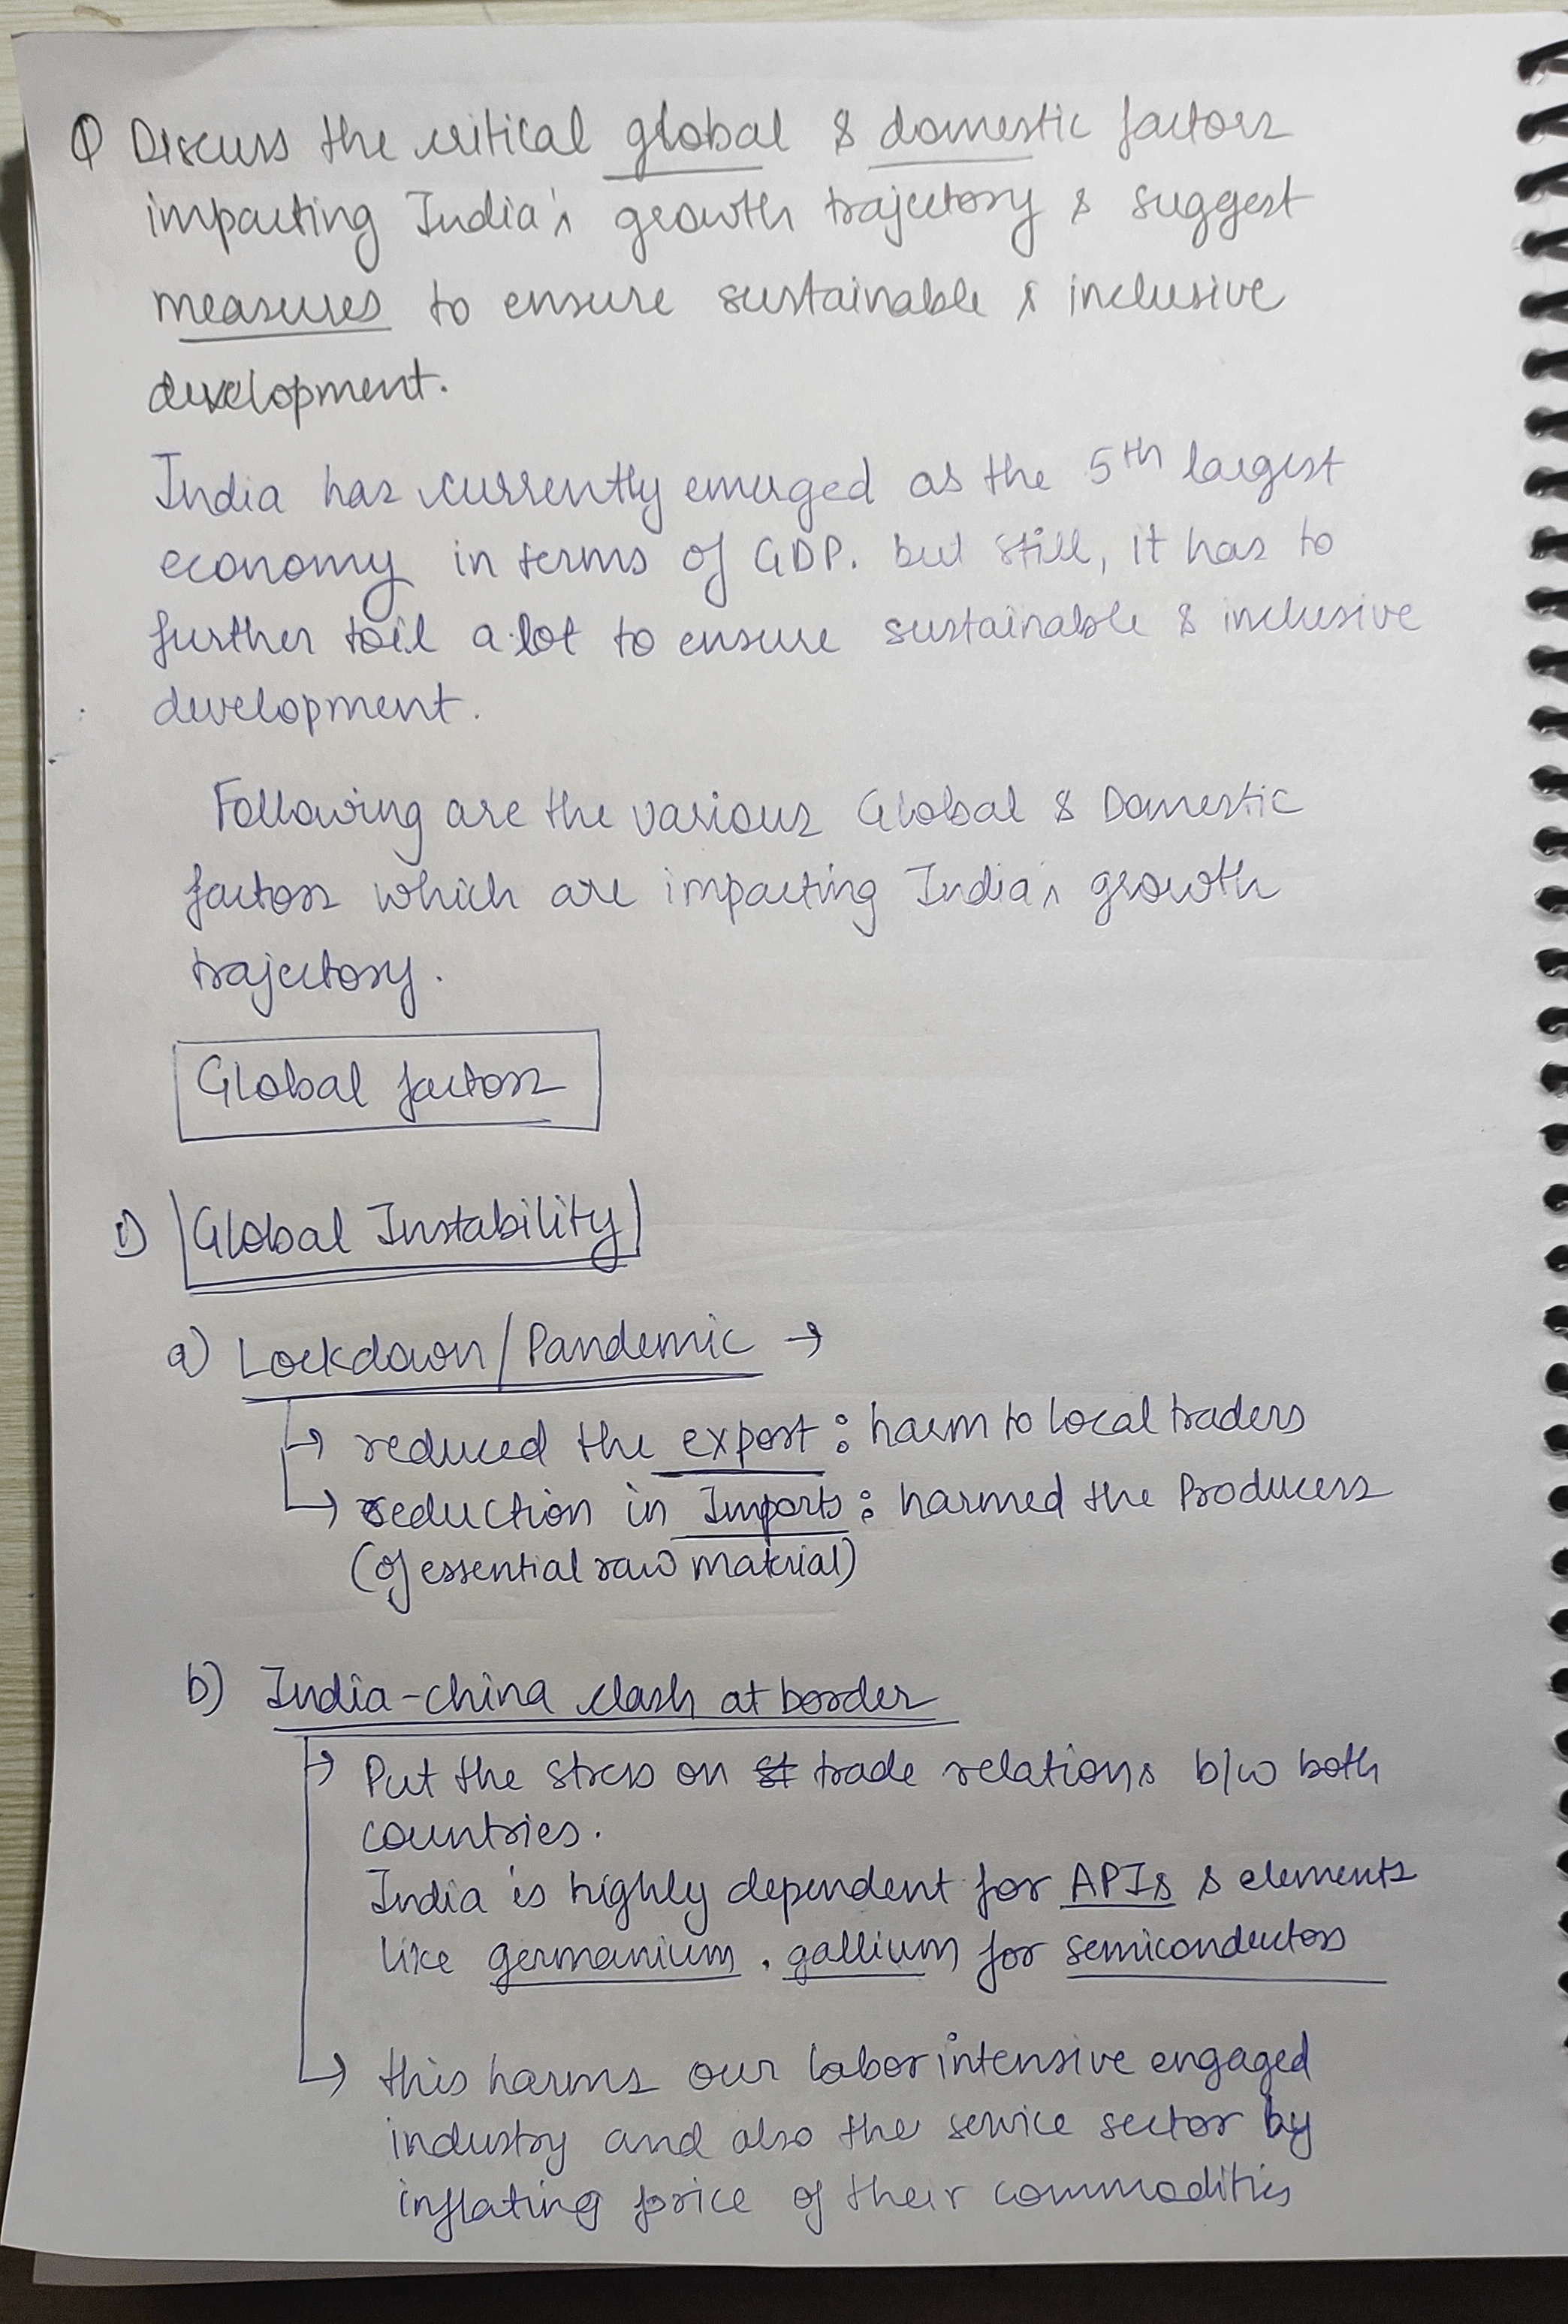 Q Discuss the critical global & domestic factors
impacting India's growth trajectory & suggest
measures to ensure sustainable & inclusive
development.
India has currently emerged as the 5th largest
economy in terms of GDP. but still, it has to
further toil a lot to ensure sustainable & inclusive
development.
Following are the various Global & Domestic
factors which are impacting India's growth
trajectory.
Global factors
1) Global Instability
a) Lockdown/Pandemic →
→ reduced the export : harm to local traders
→ reduction in Imports : harmed the Producers
(of essential raw material)
b) India-china clash at border
→ Put the stress on trade relations b/w both
countries.
India is highly dependent for APIs & elements
like germanium, gallium for semiconductors
→ this harms our labor intensive engaged
industry and also the service sector by
inflating price of their commodities